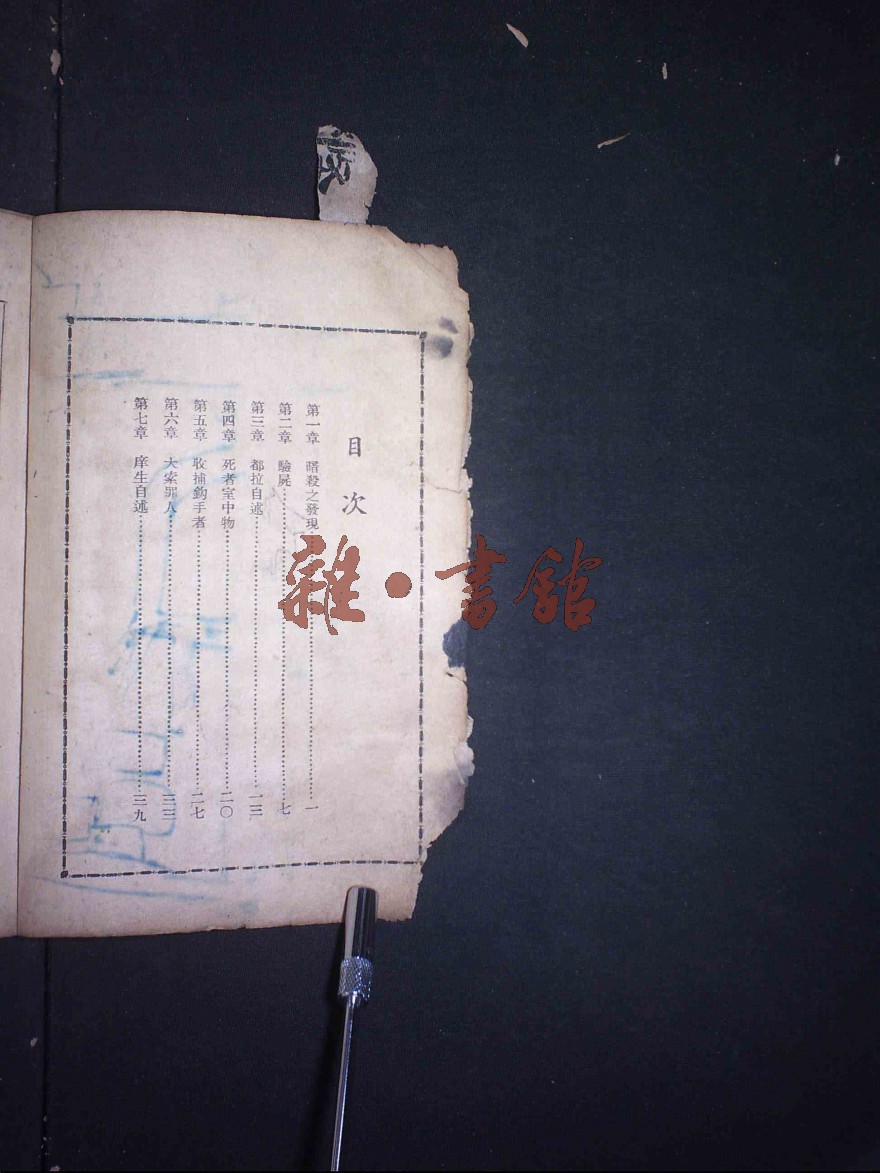 目次
第一章 暗殺之發現……一
第二章 驗屍……七
第三章 都拉自述……一三
第四章 死者室中物……二〇
第五章 收捕鈎手者……二七
第六章 大索罪人……三三
第七章 庠生自述……三九
雜·書館